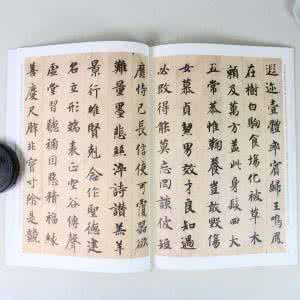 遐迩壹體率賓歸王鳴鳳
在樹白駒食場化被草木
賴及萬方蓋此身髮四大
五常恭惟鞠養豈敢毀傷
女慕貞潔男效才良知過
必改得能莫忘罔談彼短
靡恃己長信使可覆器欲
難量墨悲絲淬詩讚羔羊
景行維賢剋念作聖德建
名立形端表正空谷傳聲
虛堂習聽禍因惡積福緣
善慶尺璧非寶寸陰是競